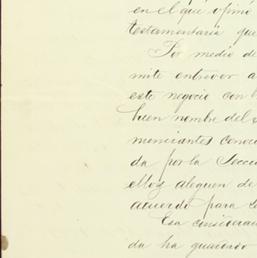 en el que opinó
testamentaría que
Por medio de
mite entrever a
este negocio con l
buen nombre del
nunciantes conoci
da por la Secci
ellos aleguen de
acuerdo para
Esa consideraci
da ha guardado